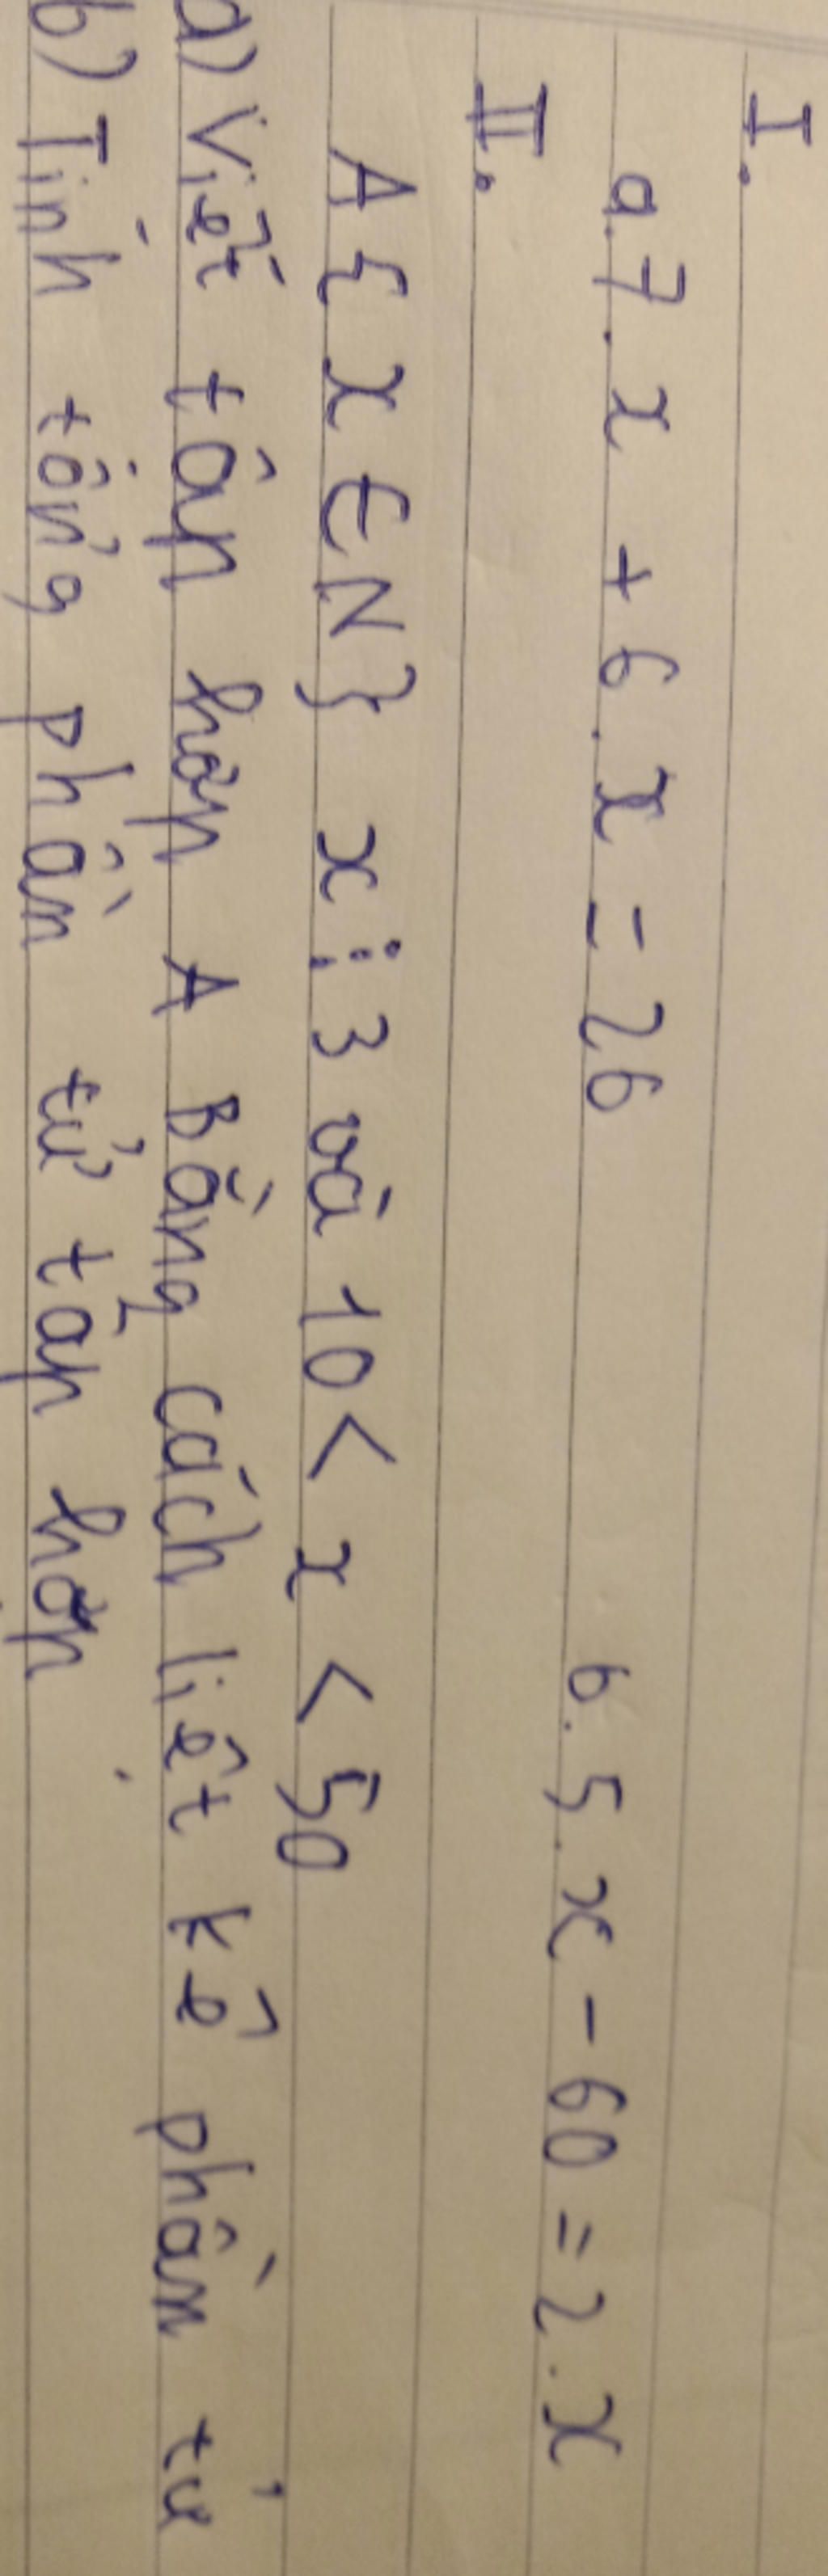 I.
a. 7.x + 6.x = 26 b. 5.x - 60 = 2.x
II.
A { x ∈ N } x ⋮ 3 và 10 < x < 50
a) Viết tập hợp A Bằng cách liệt kê phần tử
b) Tính tổng phần tử tập hợp